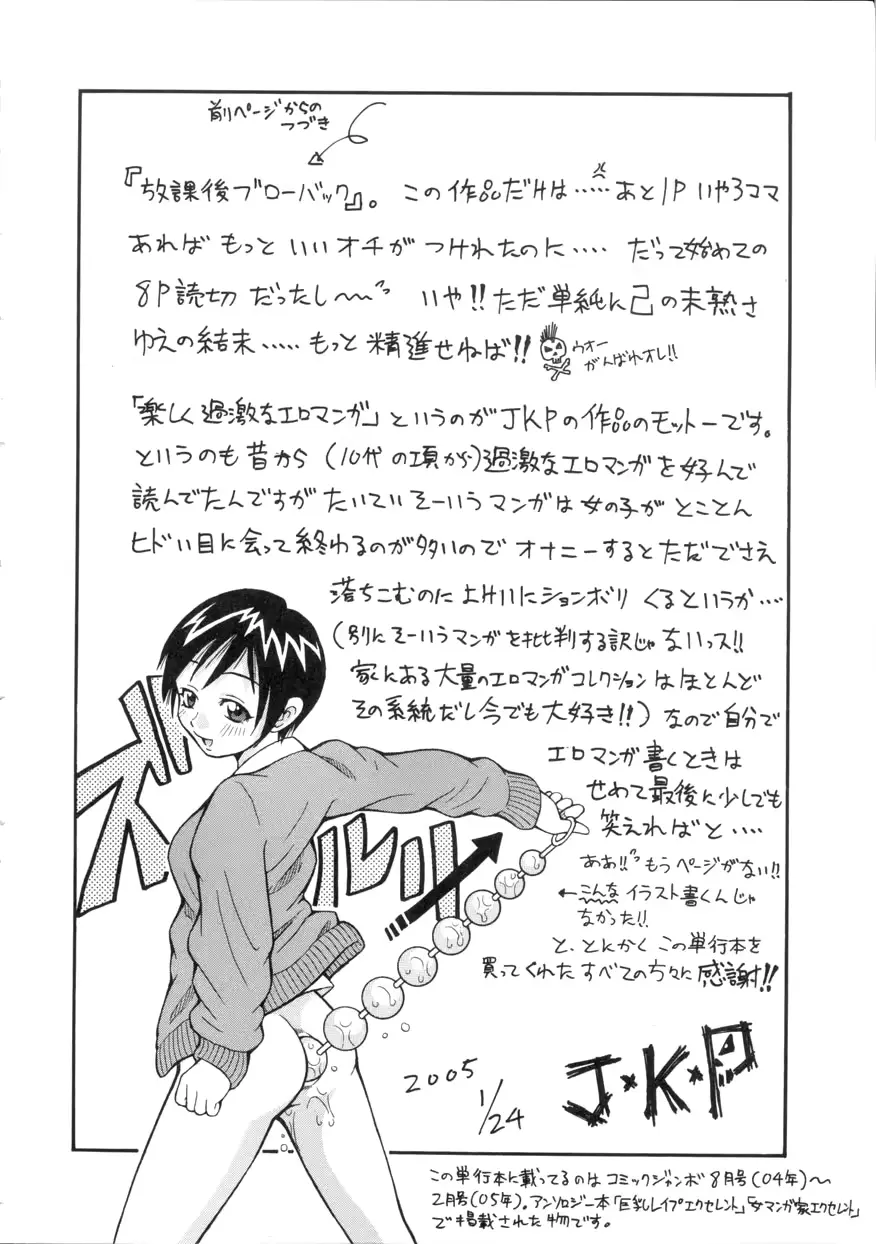 前ページからの
つづき
『放課後ブローバック』。この作品だけは……あと1Pいや3コマ
あればもっといいオチがつけれたのに…. だって始めての
8P読切だったし〜 いや!!ただ単純に己の未熟さ
ゆえの結末……もっと精進せねば!!
ウオー
がんばれオレ!!
「楽しく過激なエロマンガ」というのがJKPの作品のモットーです。
というのも昔から(10代の項から)過激なエロマンガを好んで
読んでたんですがたいていそーいうマンガは女の子がとことん
ヒドい目に会って終わるのが多いのでオナニーするとただでさえ
落ちこむのによけいにションボリくるというか….
(別にそーいうマンガを批判する訳じゃないっス!!
家にある大量のエロマンガコレクションはほとんど
その系統だし今でも大好き!!)なので自分で
エロマンガ書くときは
せめて最後に少しでも
笑えればと….
ああ!!もうページがない!!
←こんなイラスト書くんじゃ
なかった!!
と、とにかくこの単行本を
買ってくれたすべての方々に感謝!!
ズルルリ
2005
1/24
J・K・P
この単行本に載ってるのはコミックジャンボ8月号(04年)〜
2月号(05年)。アンソロジー本「巨乳レイプエクセレント」「女マンガ家エクセレント」
で掲載された物です。